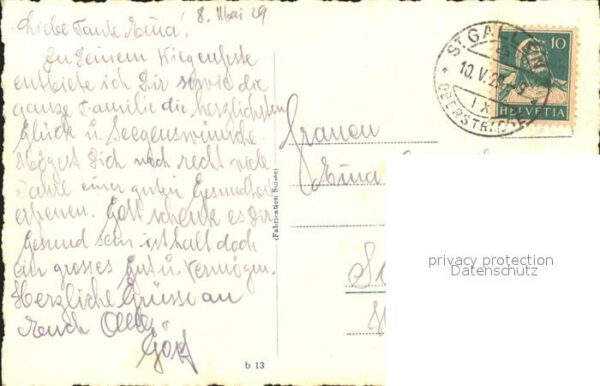 8. Mai 29
Liebe Tante Nina!
Zu Deinem Wiegenfeste
entbiete ich Dir sowie die
ganze Familie die herzlichsten
Glück u. Seegenswünsche.
Mögest Dich noch recht viele
Jahre einer guten Gesundheit
erfreuen. Gott schenke es Dir
Gesund sein ist halt doch
ein grosses Gut u. Vermögen.
Herzliche Grüsse an
Euch Alle,
(Fabrication Suisse)
b 13
ST. GALLEN
10.V.29
OBERSTRASSE
10
HELVETIA
Frauen
Nina
privacy protection
Datenschutz